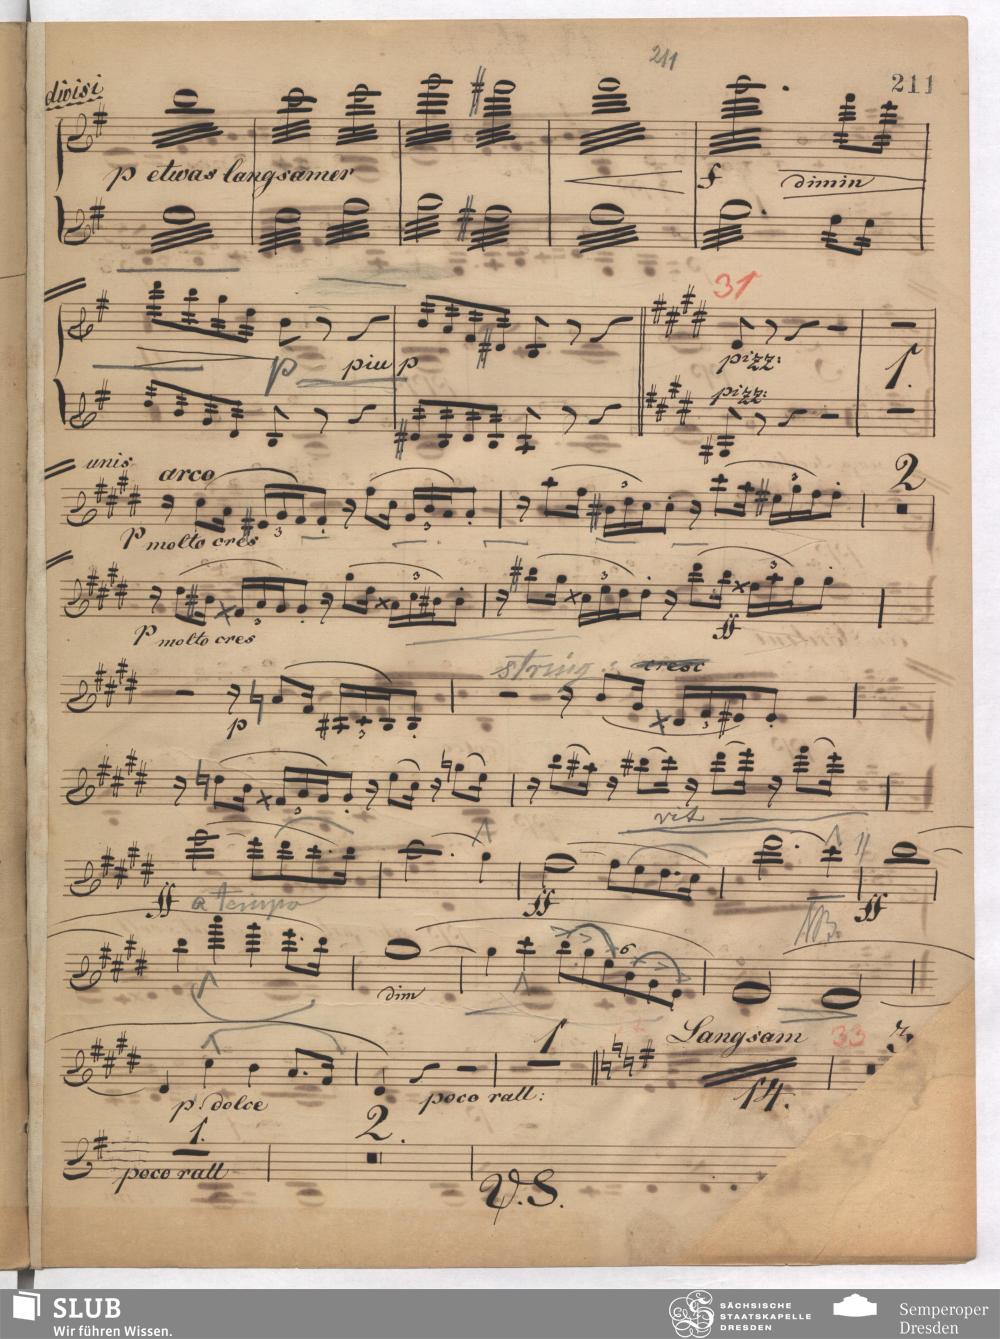 211
211
divisi
p etwas langsamer f dimin
31
p piu p pizz:
pizz:
1.
unis arco 2
3 3 3 3
p molto cres
3 3 3
p molto cres ff
string: cresc
p 3 3
3
rit
ff a tempo ff ff
NB.
6
dim
1 Langsam 33
p. dolce poco rall: 14.
1. 2.
poco rall
V.S.
SLUB
Wir führen Wissen.
SÄCHSISCHE
STAATSKAPELLE
DRESDEN
Semperoper
Dresden